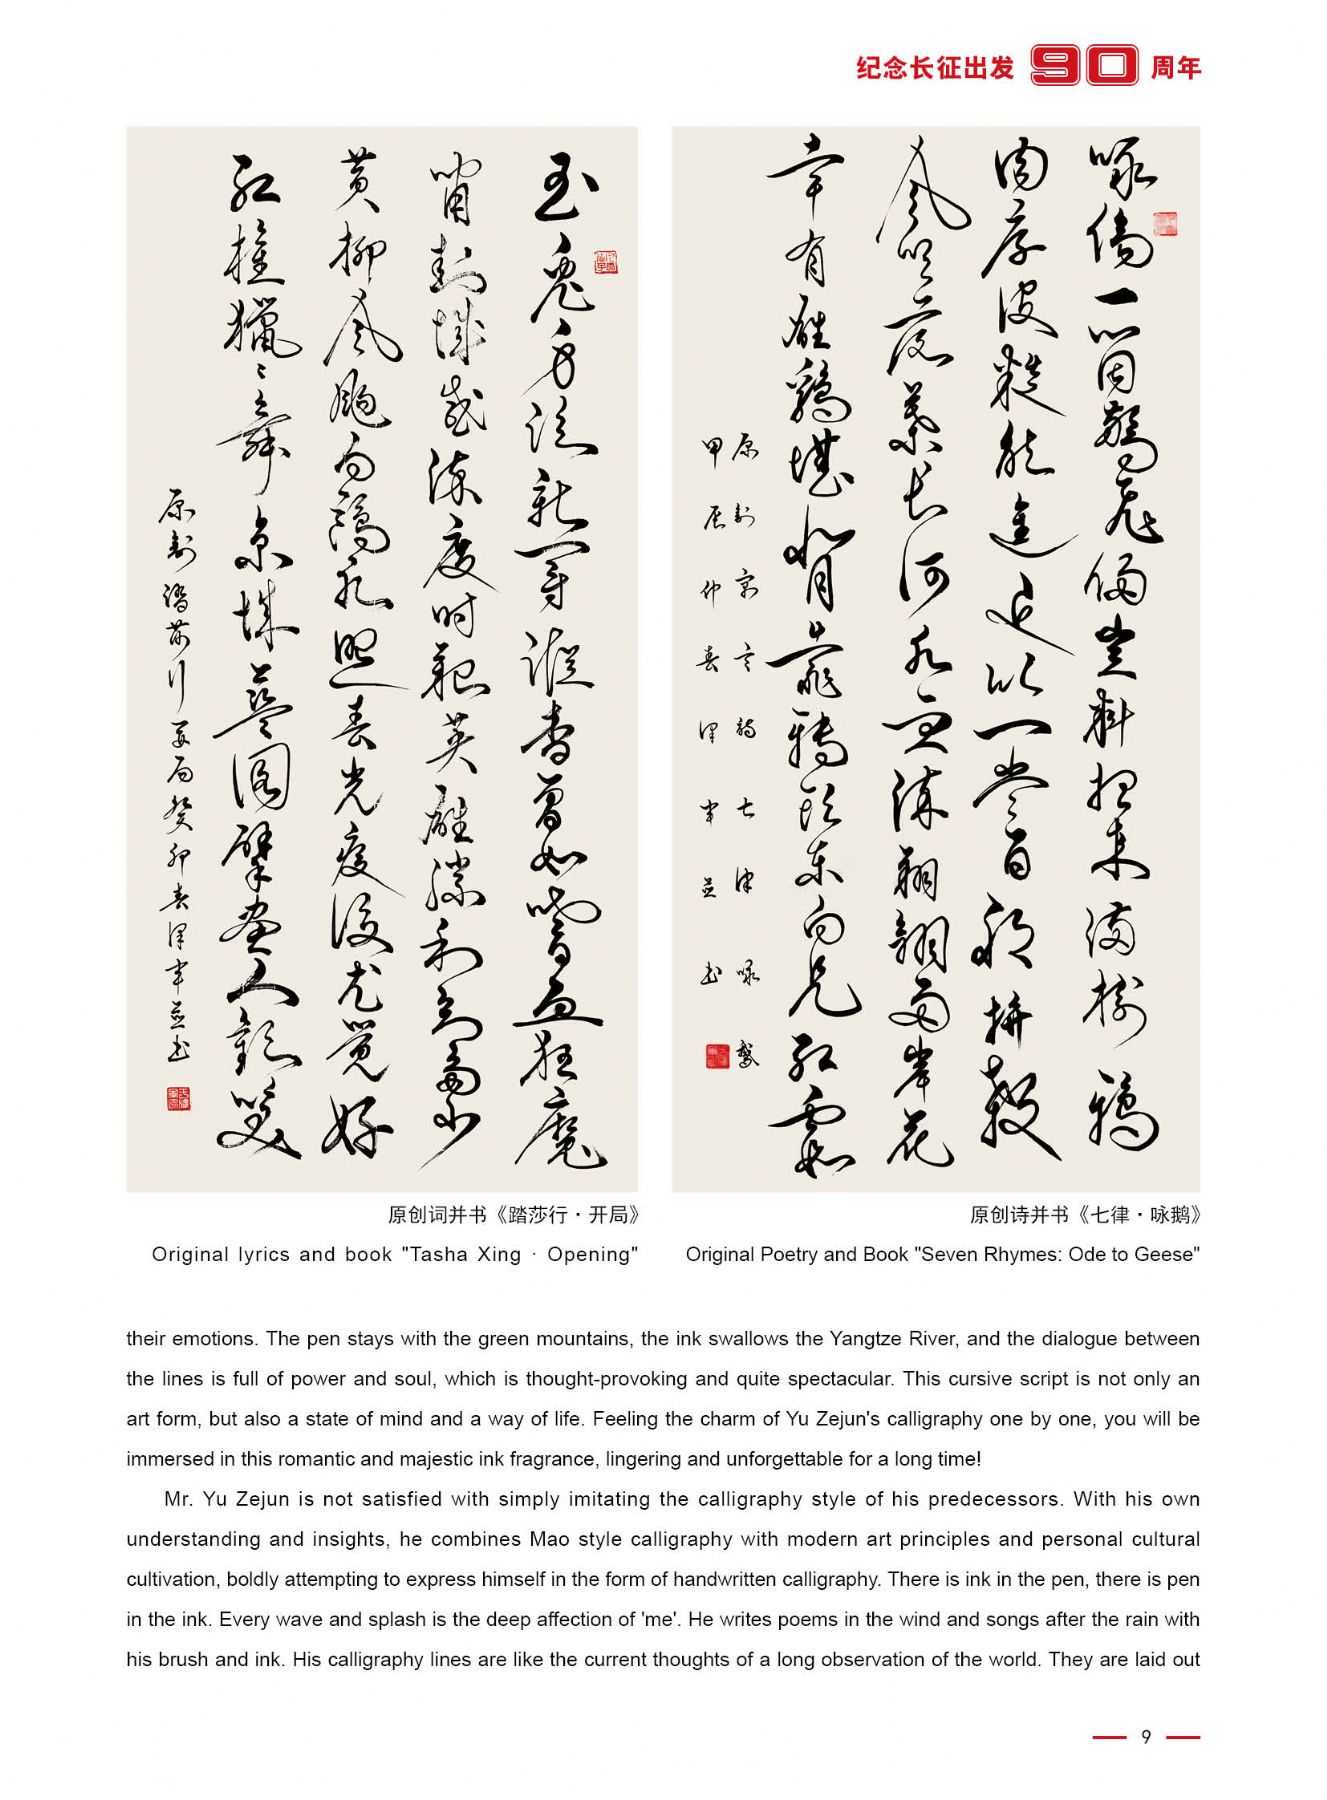 纪念长征出发90周年
一因驚飛岂料招来满樹鴉
肉厚皮糙能進退以一當百敢拼殺
风长河翩翩两岸花
幸有雄鷄堪背靠东向见红霞
原創七律咏鵝
甲辰仲春澤軍並书
玉兔方新如嗜血狂魔
封城感染度时艱英雄勝利知多少
黄柳风照春光疫後尤覺好
红旗獵々舞京城藍图擘画人歡笑
原創踏莎行開局癸卯春澤軍並书
原创词并书《踏莎行·开局》
Original lyrics and book "Tasha Xing · Opening"
原创诗并书《七律·咏鹅》
Original Poetry and Book "Seven Rhymes: Ode to Geese"
their emotions. The pen stays with the green mountains, the ink swallows the Yangtze River, and the dialogue between
the lines is full of power and soul, which is thought-provoking and quite spectacular. This cursive script is not only an
art form, but also a state of mind and a way of life. Feeling the charm of Yu Zejun's calligraphy one by one, you will be
immersed in this romantic and majestic ink fragrance, lingering and unforgettable for a long time!
Mr. Yu Zejun is not satisfied with simply imitating the calligraphy style of his predecessors. With his own
understanding and insights, he combines Mao style calligraphy with modern art principles and personal cultural
cultivation, boldly attempting to express himself in the form of handwritten calligraphy. There is ink in the pen, there is pen
in the ink. Every wave and splash is the deep affection of 'me'. He writes poems in the wind and songs after the rain with
his brush and ink. His calligraphy lines are like the current thoughts of a long observation of the world. They are laid out
9